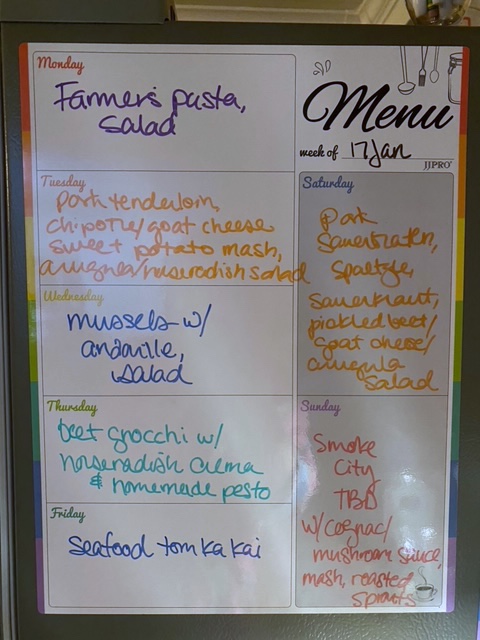 Monday
Farmer's pasta,
salad
Menu
week of 17 Jan
JJPRO
Tuesday
Pork tenderloin,
chipotle/goat cheese
sweet potato mash,
arugula/horseradish salad
Wednesday
mussels w/
andouille,
salad
Thursday
beet gnocchi w/
horseradish crema
& homemade pesto
Friday
seafood tom ka kai
Saturday
Pork
Sauerbraten,
Spaetzle,
sauerkraut,
pickled beet/
goat cheese/
arugula
salad
Sunday
Smoke
City
TBD
w/cognac/
mushroom sauce,
mash, roasted
sprouts